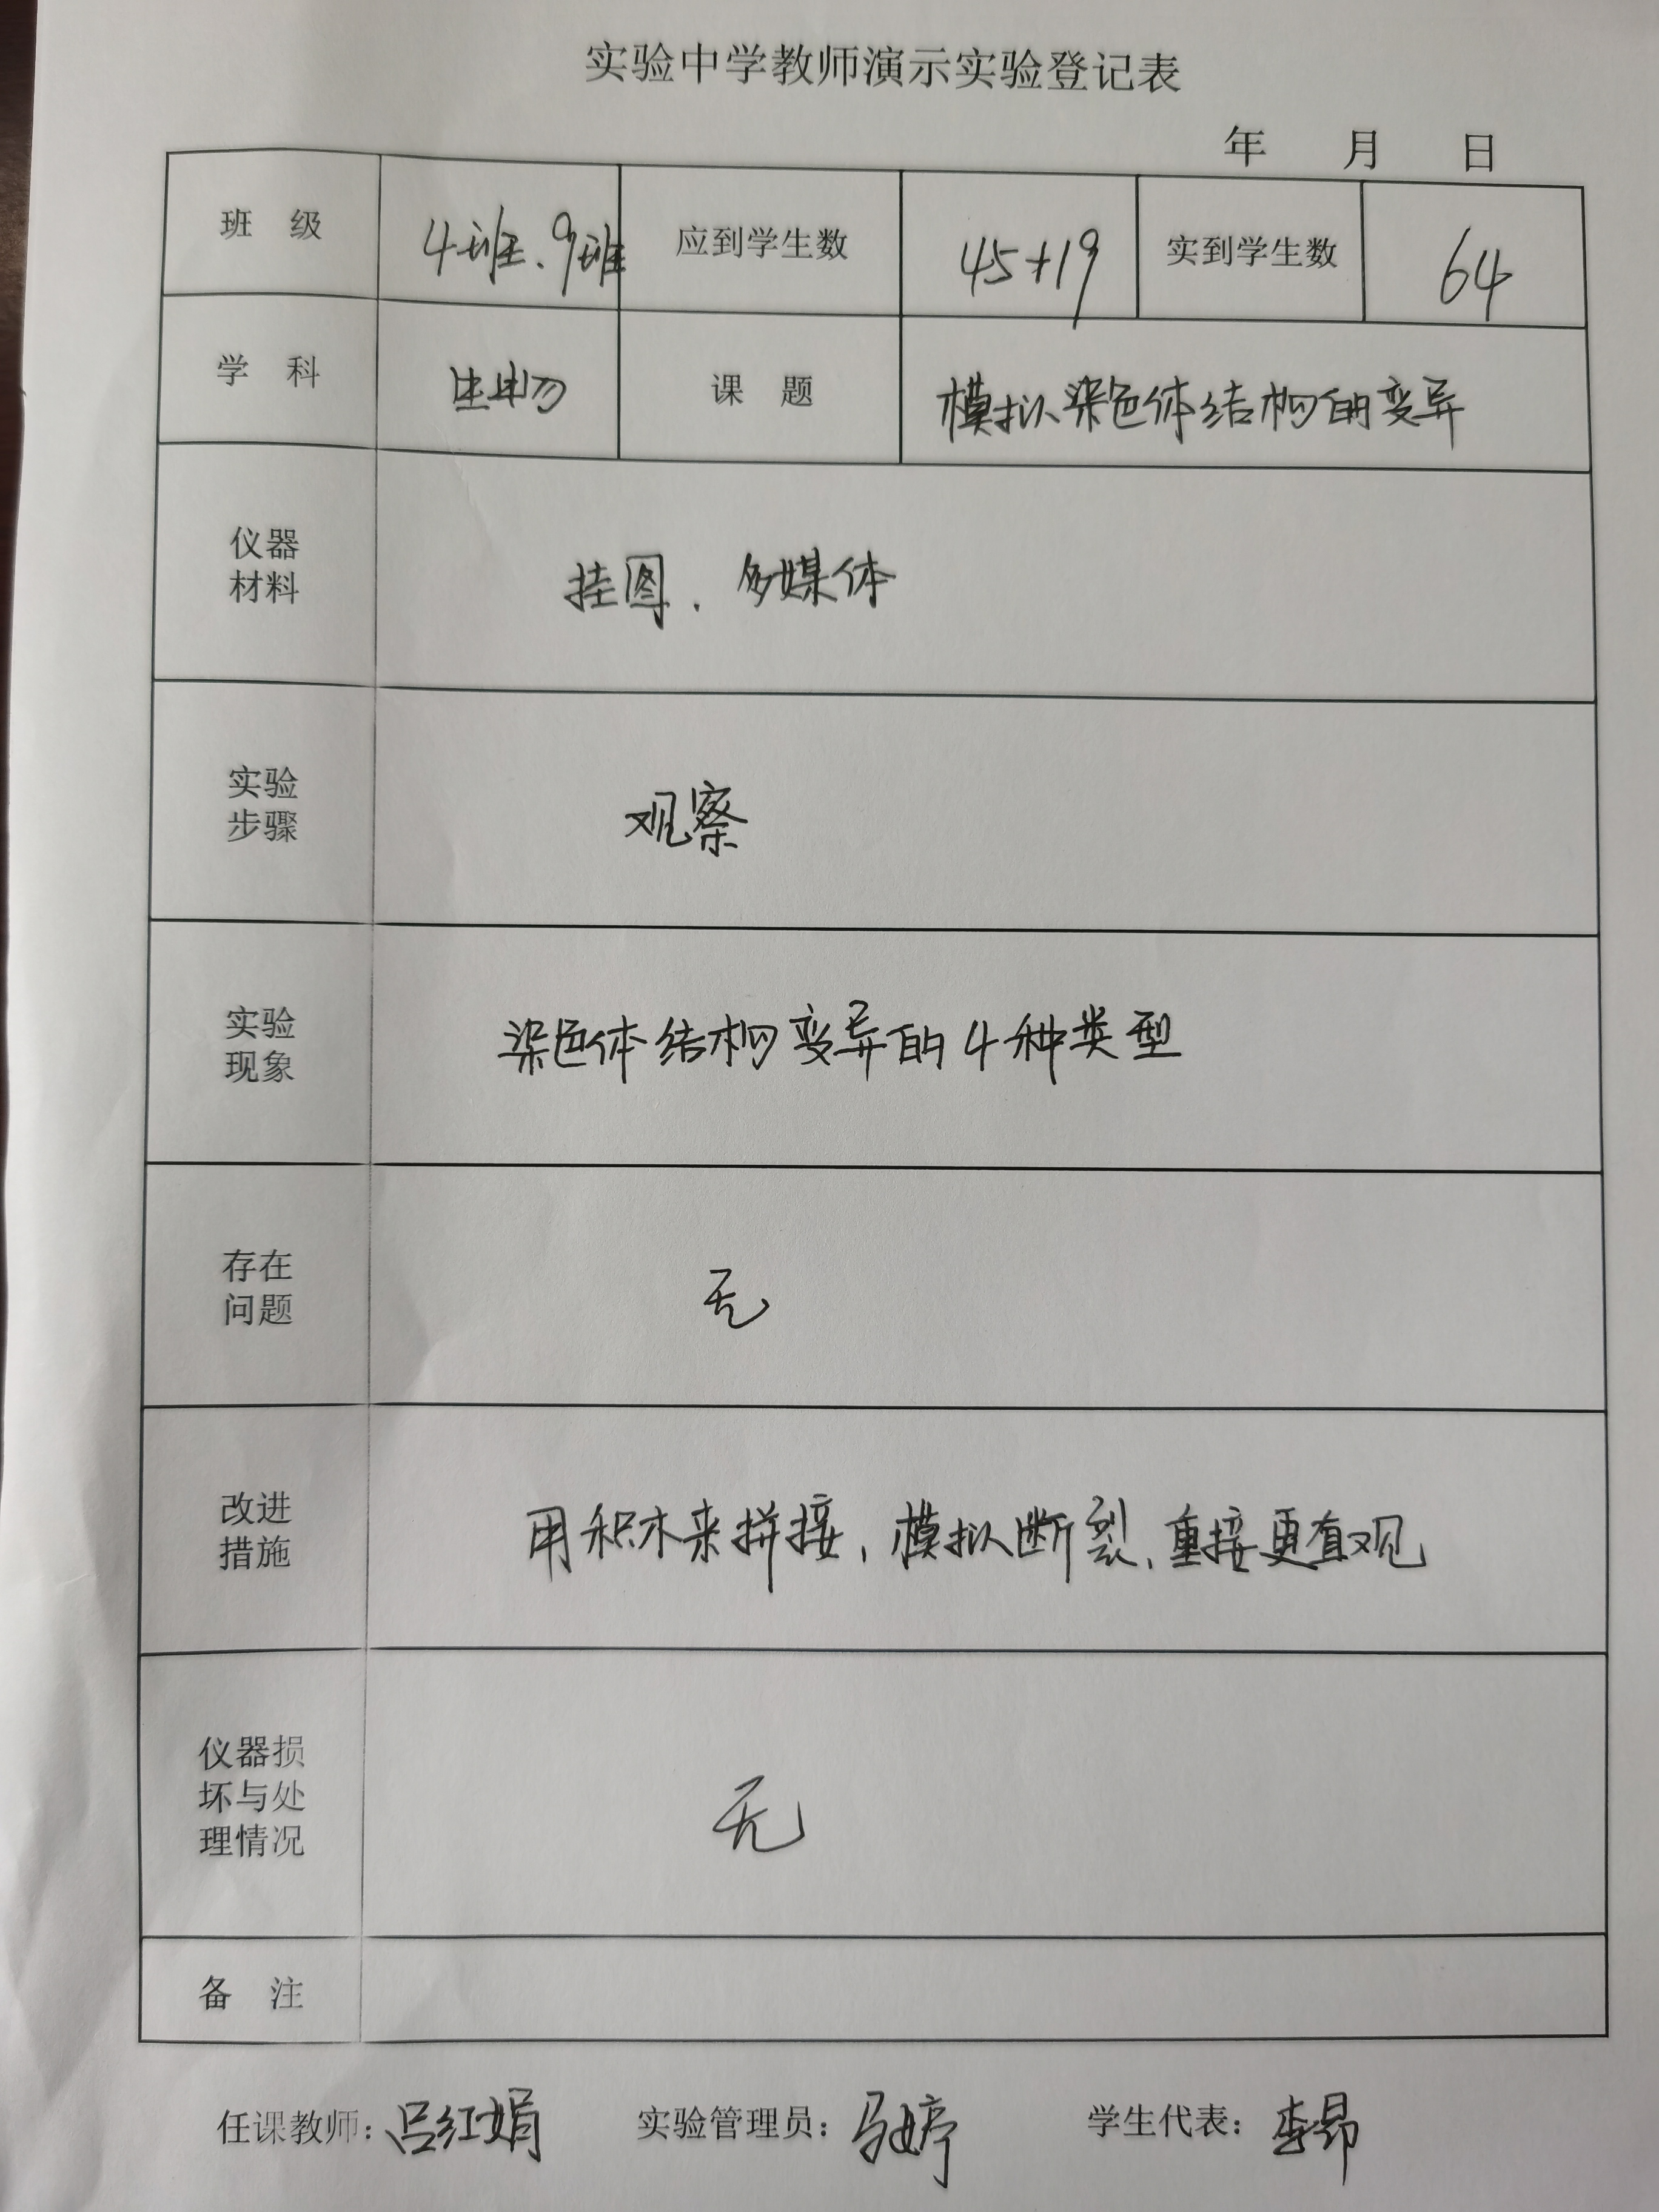 实验中学教师演示实验登记表
年 月 日
班 级 4班、9班 应到学生数 45+19 实到学生数 64
学 科 生物 课 题 模拟染色体结构的变异
仪器
材料
挂图、多媒体
实验
步骤
观察
实验
现象
染色体结构变异的4种类型
存在
问题
无
改进
措施
用积木来拼接，模拟断裂、重接更直观
仪器损
坏与处
理情况
无
备 注
任课教师：吕红娟 实验管理员：马婷 学生代表：李昂